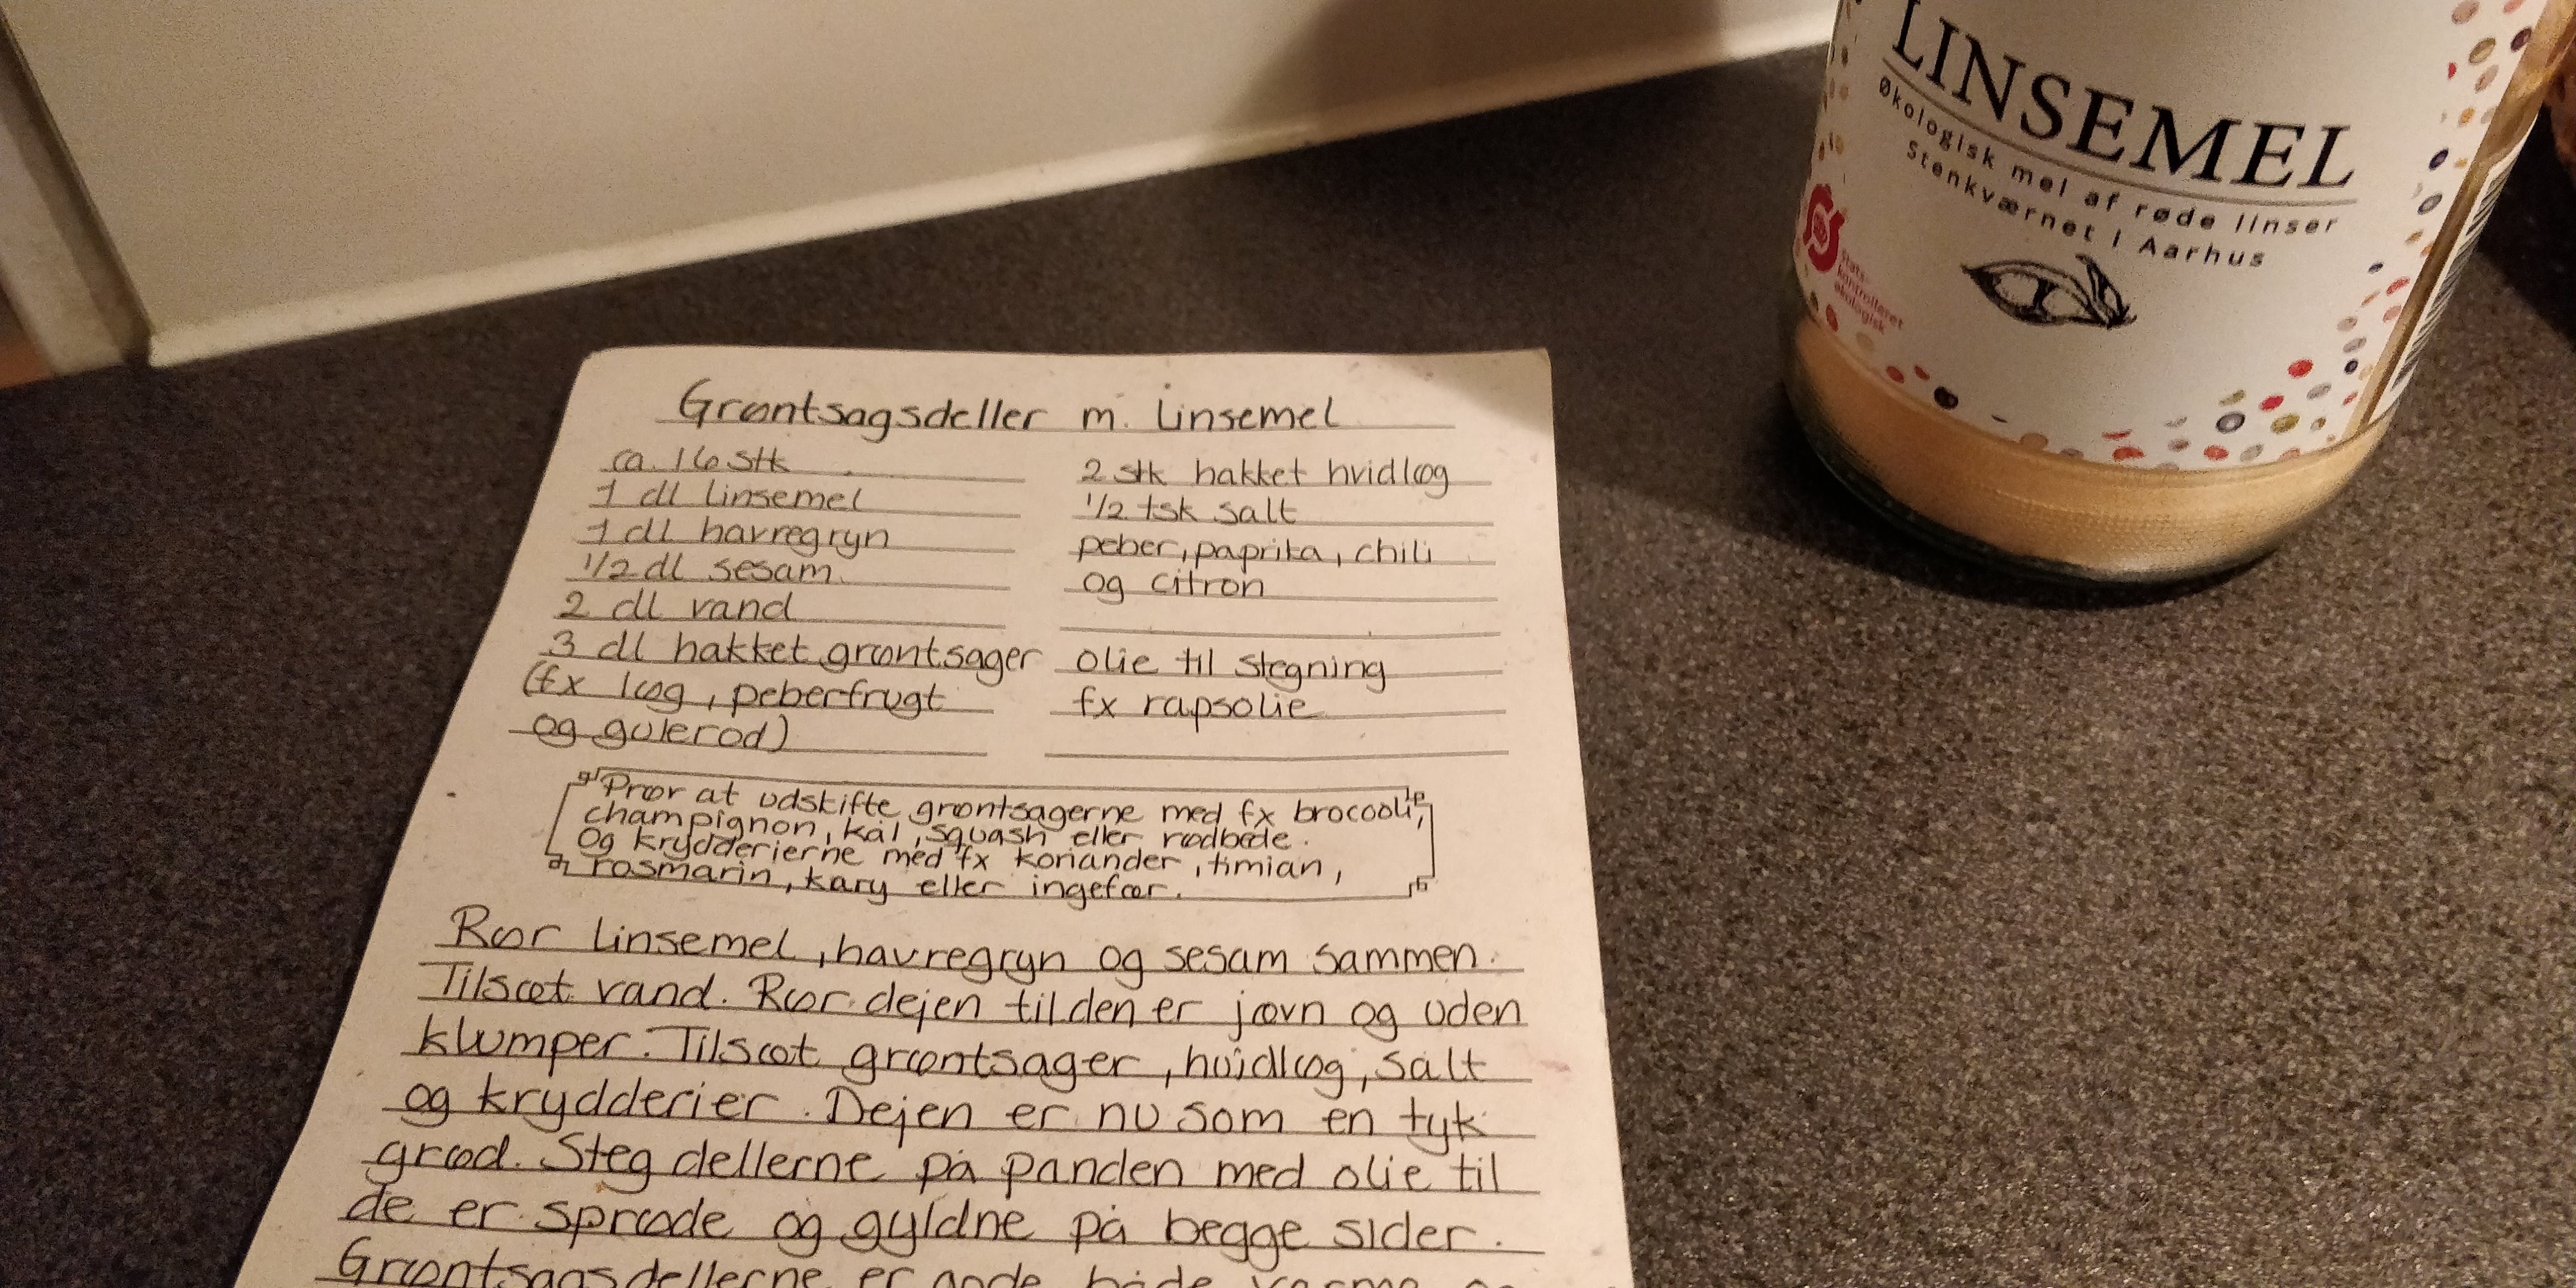 LINSEMEL
Økologisk mel af røde linser
Stenkværnet i Aarhus
Stats-
kontrolleret
økologisk
Grøntsagsdeller m. Linsemel
ca. 16 stk
1 dl linsemel
1 dl havregryn
1/2 dl sesam
2 dl vand
3 dl hakket grøntsager
(fx løg, peberfrugt
og gulerod)
2 stk hakket hvidløg
1/2 tsk salt
peber, paprika, chili
og citron
olie til stegning
fx rapsolie
Prøv at udskifte grøntsagerne med fx brocooli,
champignon, kål, squash eller rødbede.
Og krydderierne med fx koriander, timian,
rosmarin, kary eller ingefær.
Rør linsemel, havregryn og sesam sammen.
Tilsæt vand. Rør dejen til den er jævn og uden
klumper. Tilsæt grøntsager, hvidløg, salt
og krydderier. Dejen er nu som en tyk
grød. Steg dellerne på panden med olie til
de er sprøde og gyldne på begge sider.
Grøntsagsdellerne er gode både varme og